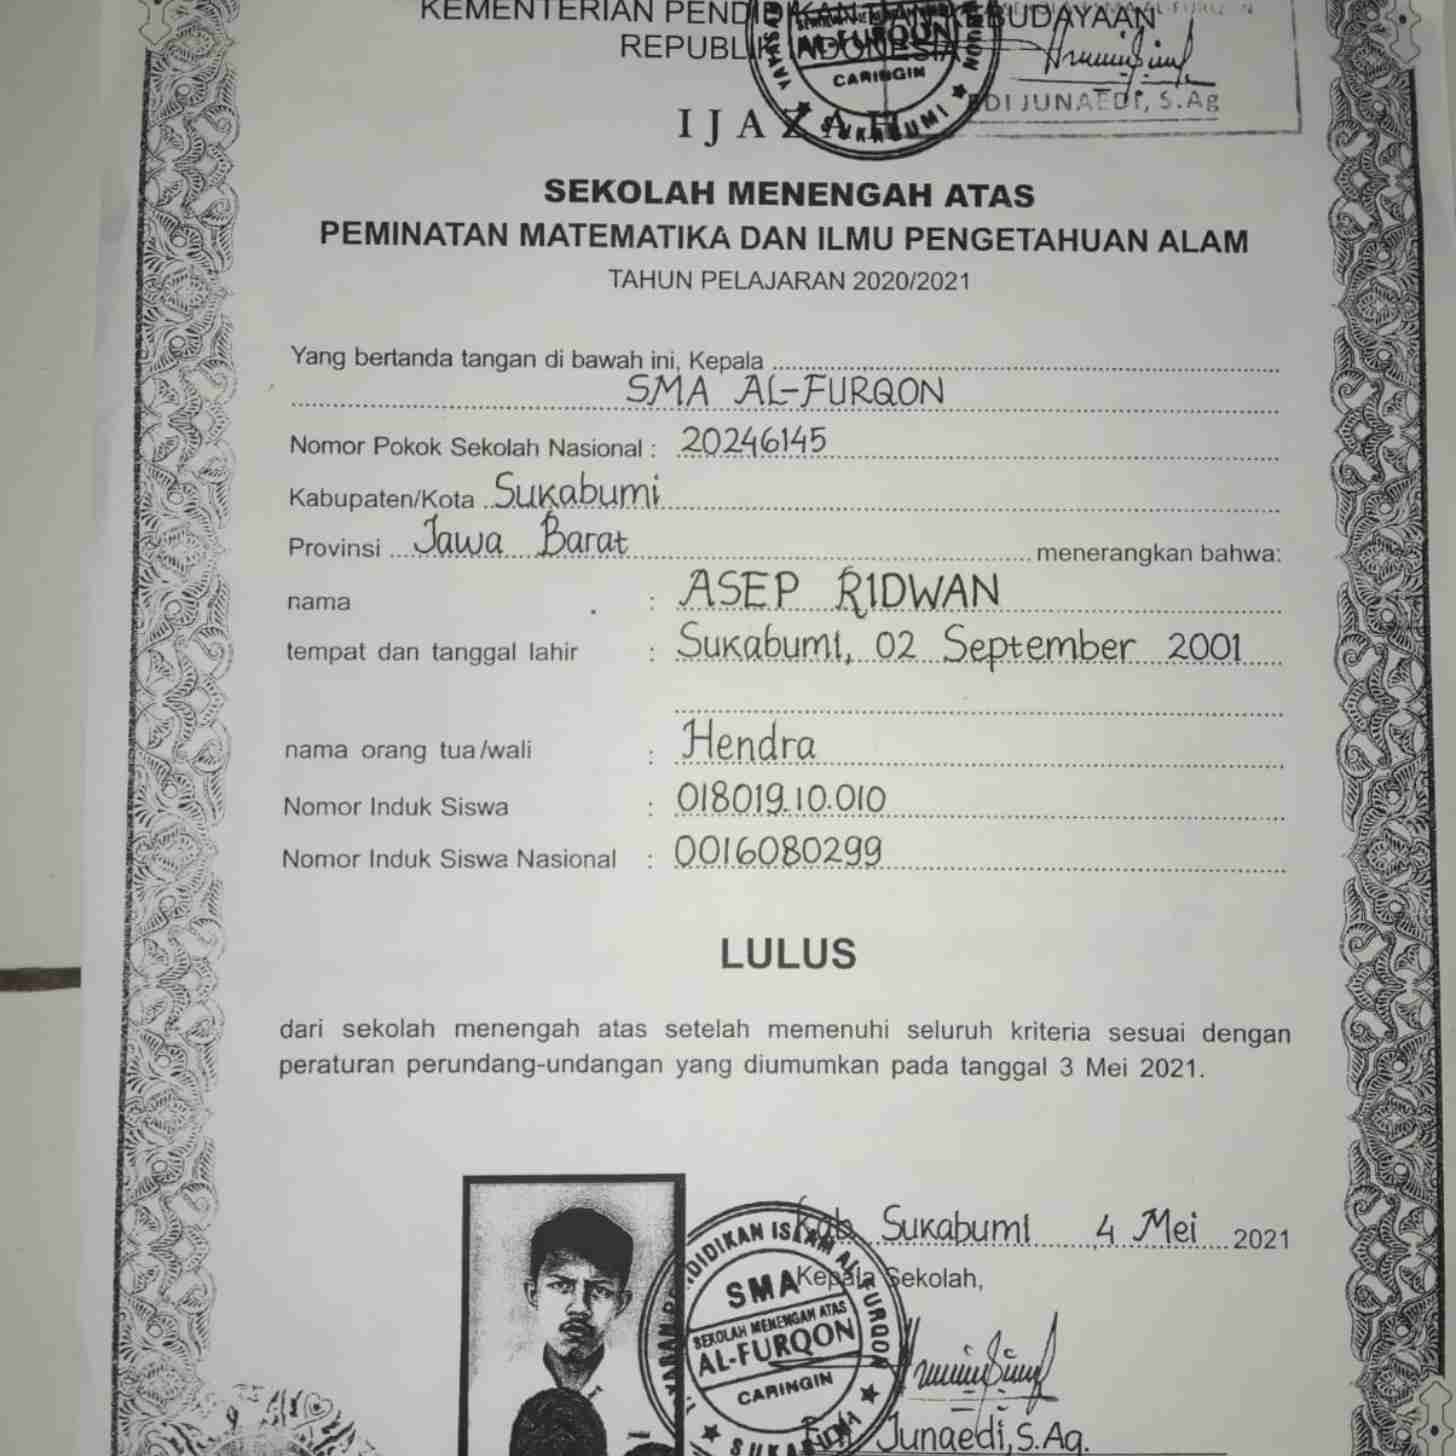 KEMENTERIAN PENDIDIKAN DAN KEBUDAYAAN
REPUBLIK INDONESIA
AL-FURQON
CARINGIN
SUKABUMI
EDI JUNAEDI, S.Ag
IJAZAH
SEKOLAH MENENGAH ATAS
PEMINATAN MATEMATIKA DAN ILMU PENGETAHUAN ALAM
TAHUN PELAJARAN 2020/2021
Yang bertanda tangan di bawah ini, Kepala
SMA AL-FURQON
Nomor Pokok Sekolah Nasional : 20246145
Kabupaten/Kota Sukabumi
Provinsi Jawa Barat menerangkan bahwa:
nama : ASEP RIDWAN
tempat dan tanggal lahir : Sukabumi, 02 September 2001
nama orang tua/wali : Hendra
Nomor Induk Siswa : 018019.10.010
Nomor Induk Siswa Nasional : 0016080299
LULUS
dari sekolah menengah atas setelah memenuhi seluruh kriteria sesuai dengan
peraturan perundang-undangan yang diumumkan pada tanggal 3 Mei 2021.
Kab. Sukabumi 4 Mei 2021
Kepala Sekolah,
SMA
SEKOLAH MENENGAH ATAS
AL-FURQON
CARINGIN
Junaedi, S.Ag.